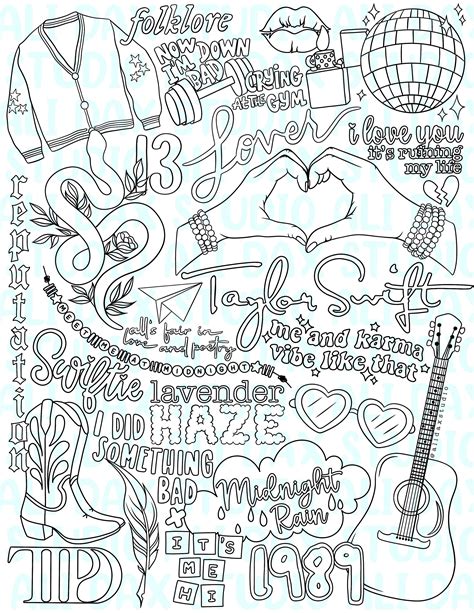 folklore
NOW I'M
DOWN BAD
CRYING
AT THE GYM
13
Lover
i love you
it's ruining
my life
reputation
Taylor Swift
MEET ME AT MIDNIGHT
all's fair in
love and poetry
me and karma
vibe like that
Swiftie
lavender
HAZE
I DID
SOMETHING
BAD
Midnight
Rain
alidaxstudio
TTPD
IT'S
ME
HI
1989
ALI DAX
STUDIO